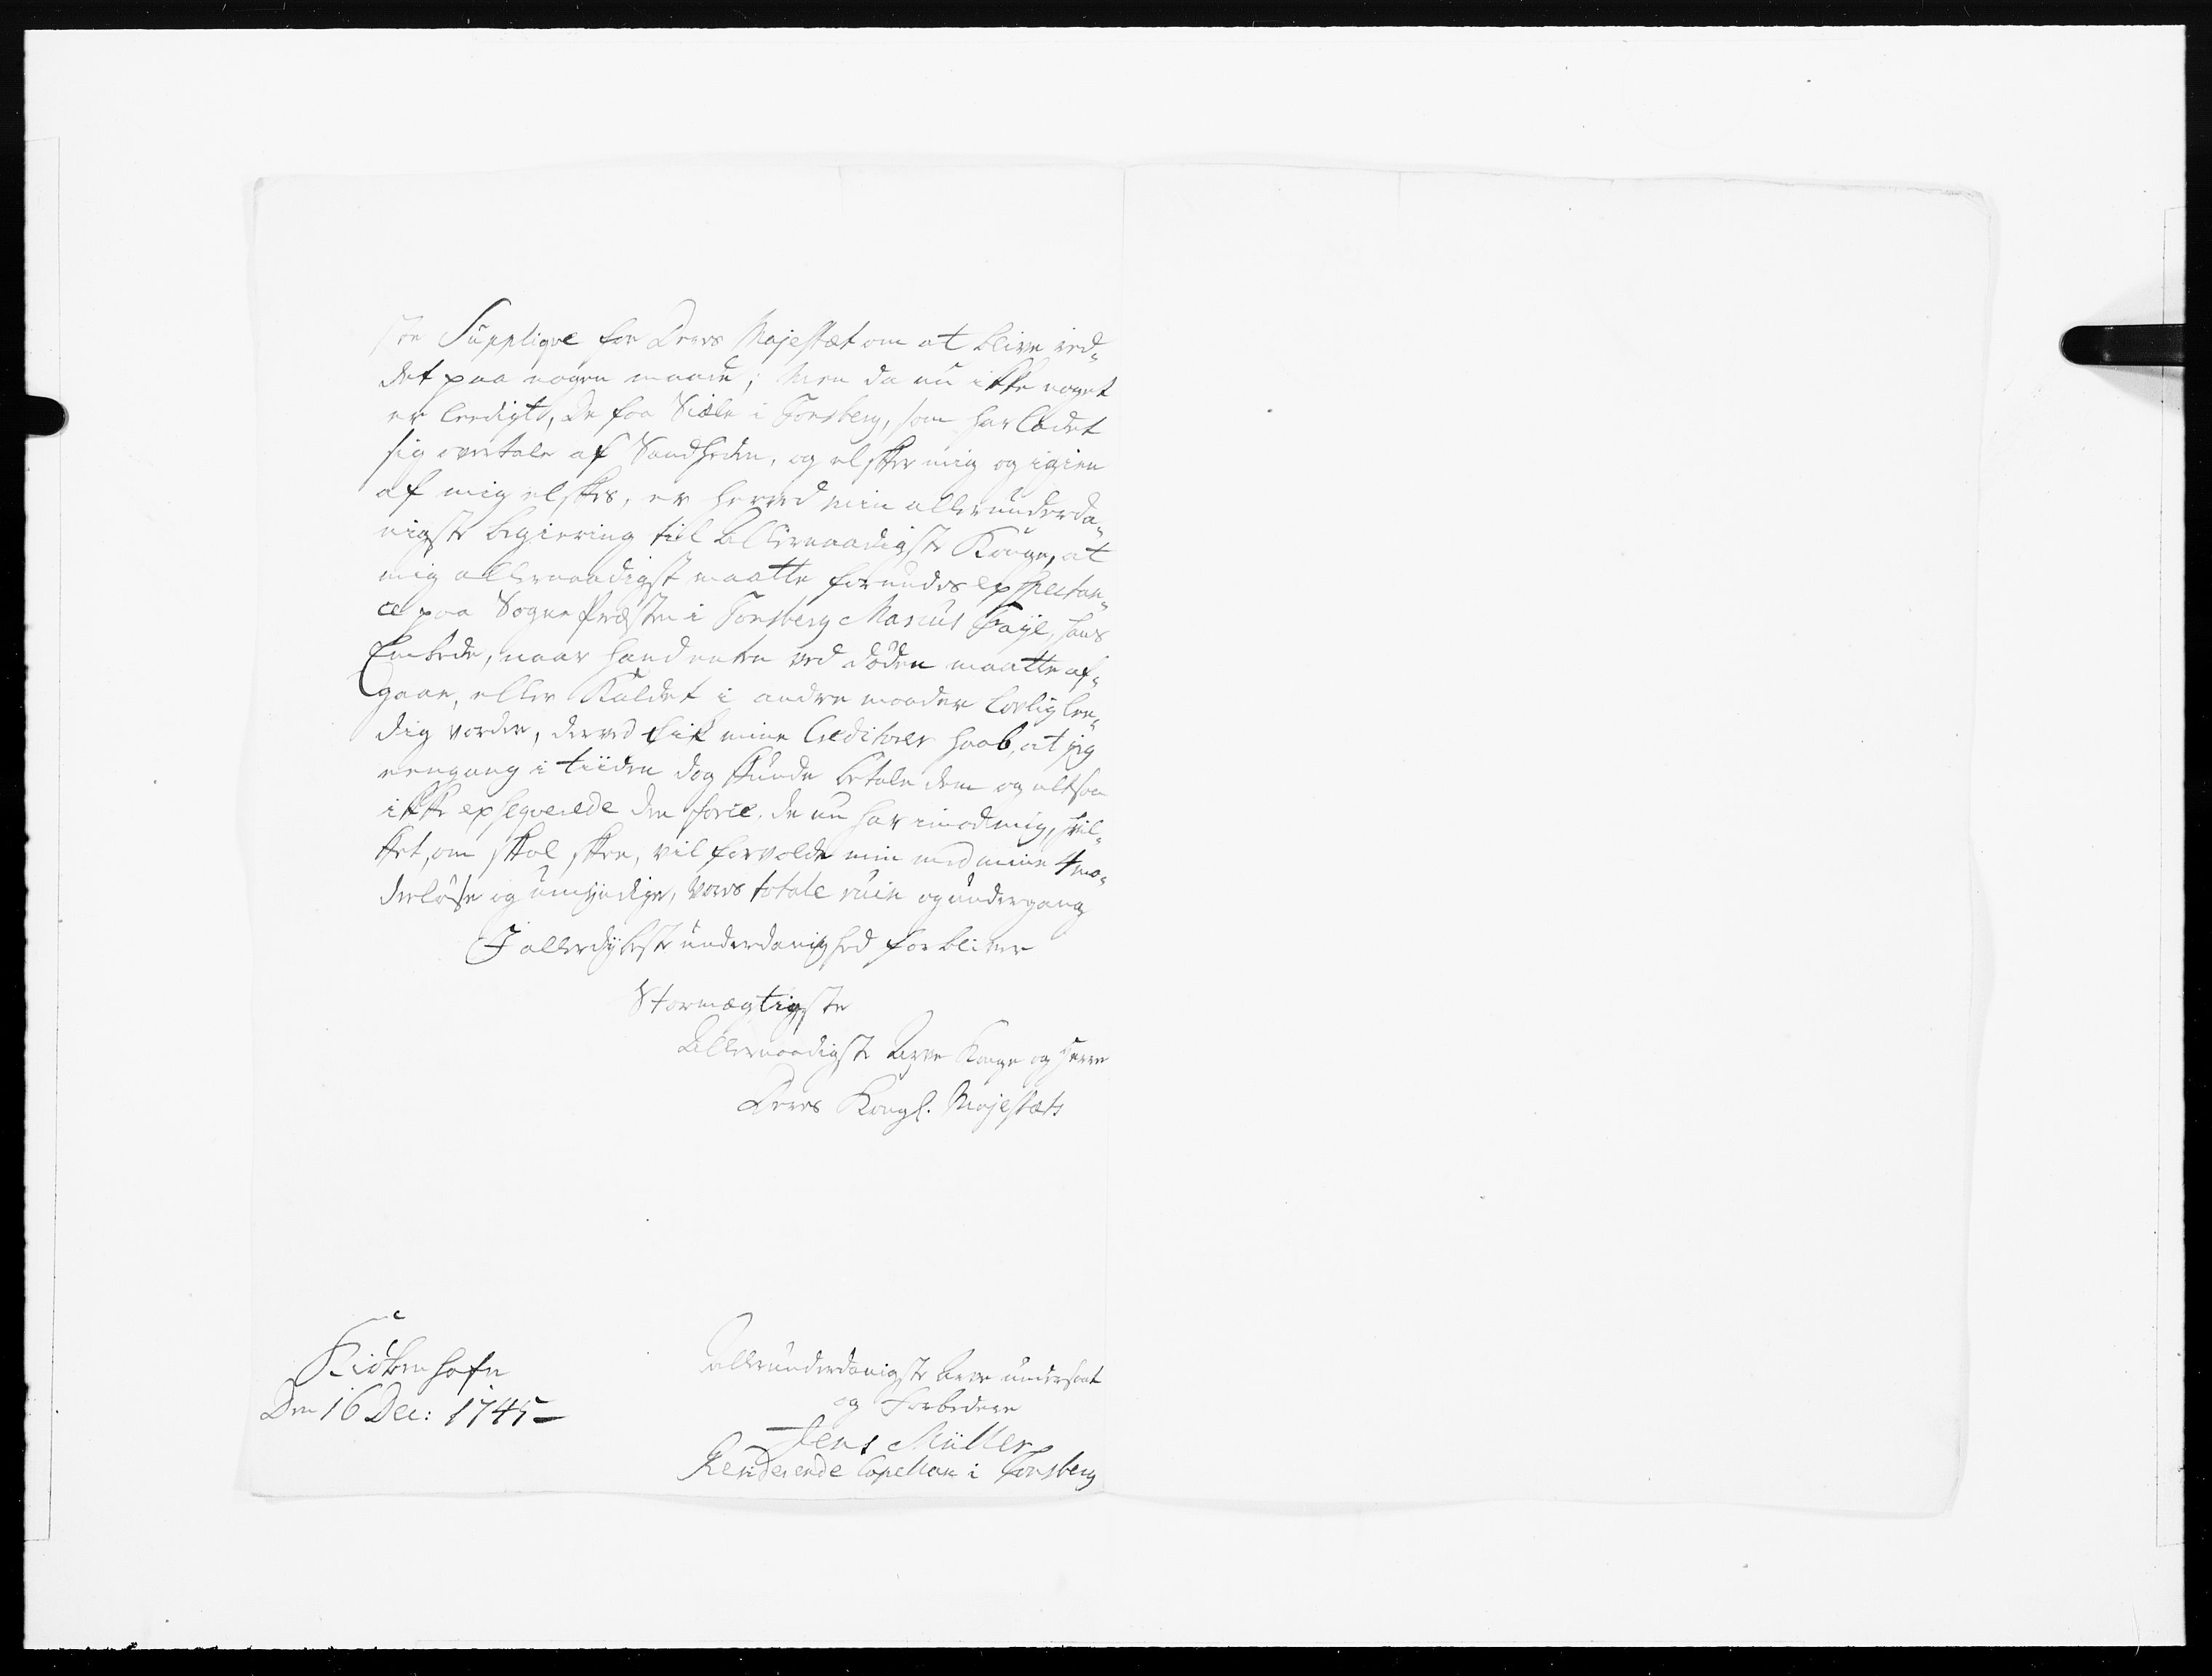 Supplique for Deres Majestæt om at blive red-
det paa nogen maade; Men da nu ikke noget
er leedigt, De faa Siæle i Tonsberg, som har ladet
sig overtale af Sandheden, og elsker mig og igien
af mig elskes, er herved min allerunderda-
nigste begiering til Allernaadigste Konge, at
mig allernaadigst maatte forundes exspectan-
ce paa Sogne Præsten i Tonsberg Marcus hans
Embede, naar hand enten ved döden maatte af-
gaae, eller Kaldet i andre maader lovlig lee-
dig vorder, derved fik mine Creditorer haab, at jeg
eengang i tiiden dog kunde betale dem og altsaa
ikke exseqverede den force, de nu har imod mig, hvil-
ket, om skal skee, vil forvolde min med mine 4 mo-
derløse og umyndige, vores totale ruin og undergang
I allerdybeste underdanighed forbliver
Stormægtigste
Allernaadigste Arve Konge og Herre
Deres Kongl. Majestæts
Kiöbenhafn
Den 16 Dec: 1745 –
allerunderdanigste Arve undersaat
og Forbedere
Jens Müller
Residerende Capellan i Tonsberg